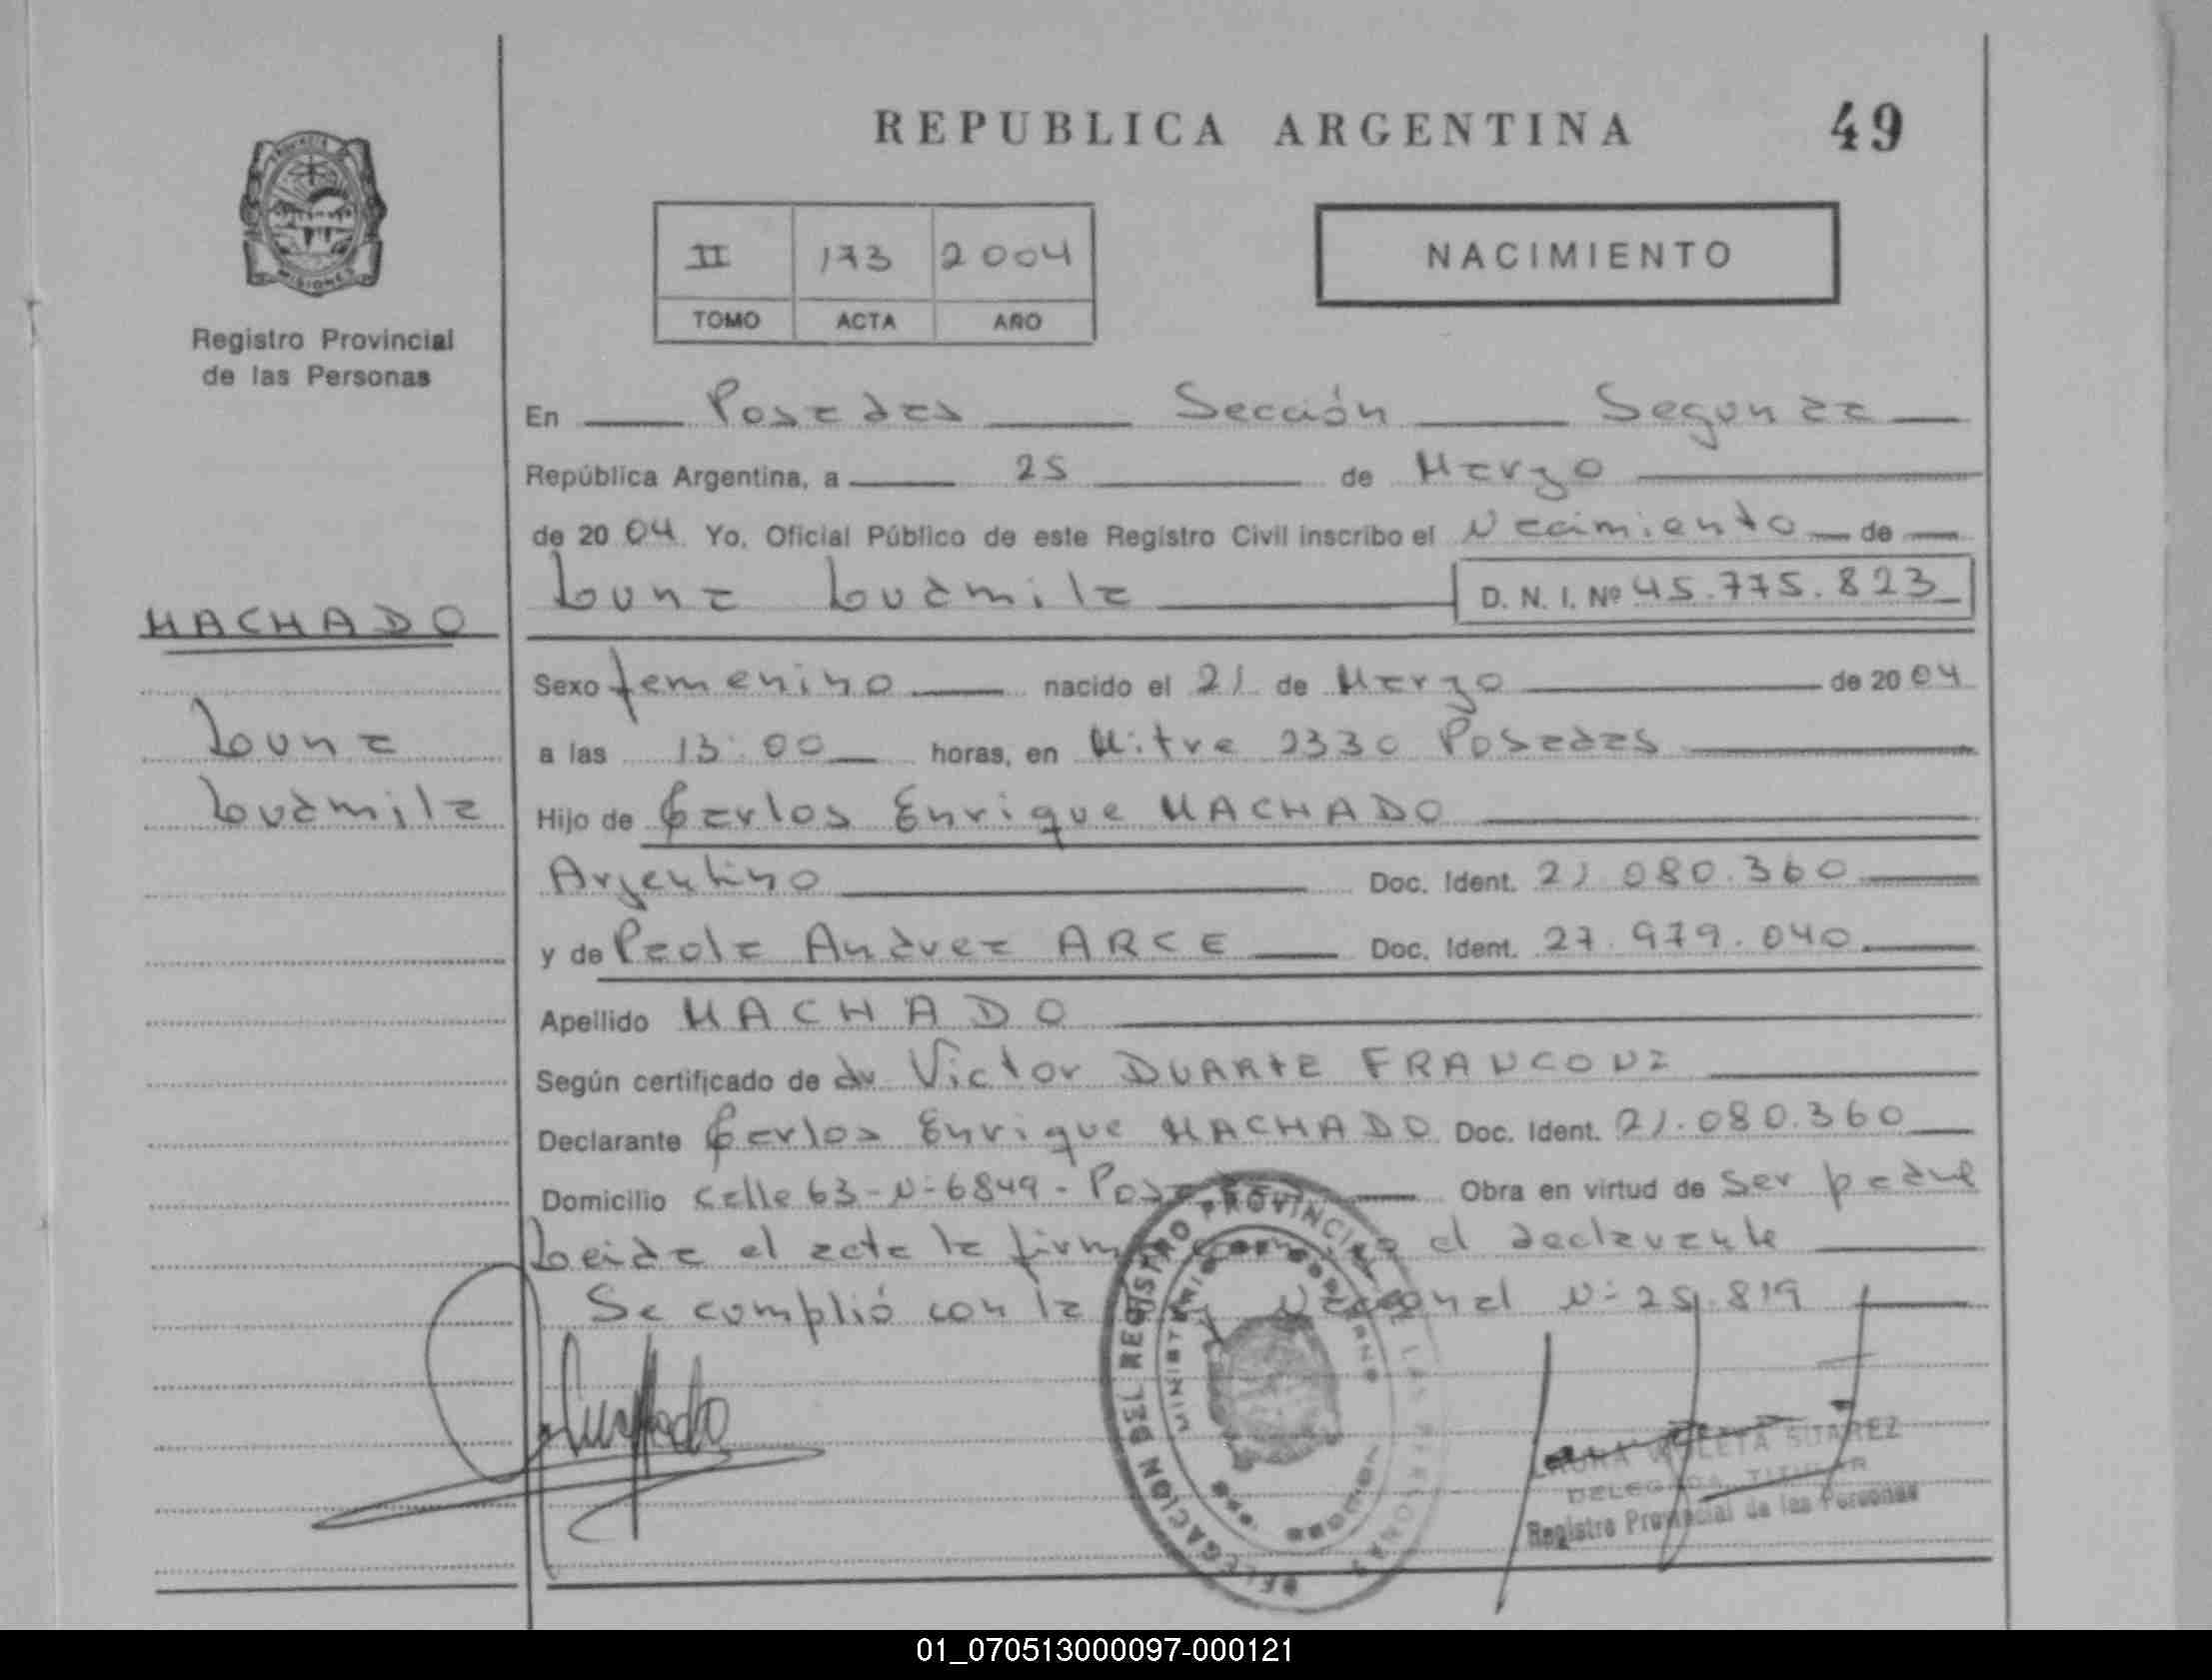 REPUBLICA ARGENTINA
49
II 173 2004
TOMO ACTA AÑO
NACIMIENTO
MISIONES
Registro Provincial
de las Personas
En Posadas Sección Segunda
República Argentina, a 25 de Marzo
de 2004 Yo, Oficial Público de este Registro Civil inscribo el Nacimiento de
Luna Ludmila D. N. I. Nº 45.775.823
MACHADO
Luna
Ludmila
Sexo femenino nacido el 21 de Marzo de 2004
a las 13:00 horas, en Mitre 2330 Posadas
Hijo de Carlos Enrique MACHADO
Argentino Doc. Ident. 21.080.360
y de Paola Andrea ARCE Doc. Ident. 27.979.040
Apellido MACHADO
Según certificado de dr Victor DUARTE FRANCONI
Declarante Carlos Enrique MACHADO Doc. Ident. 21.080.360
Domicilio calle 63-N-6849-Posadas Obra en virtud de ser padre
Leida el acta la firma conmigo el declarante
Se cumplió con la Ley Nacional N- 25.819
DELEGACION DEL REGISTRO PROVINCIAL DE LAS PERSONAS
MINISTERIO
VIOLETA SUAREZ
DELEGADA TITULAR
Registro Provincial de las Personas
01_070513000097-000121